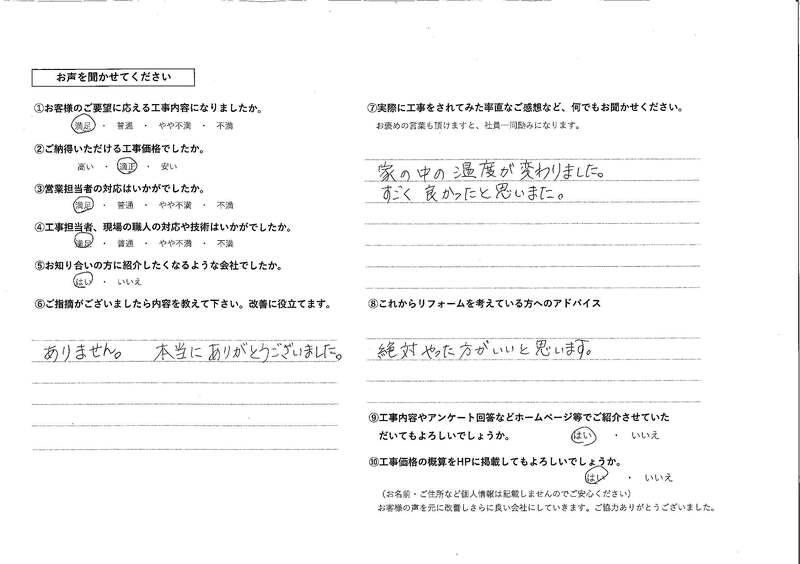 お声を聞かせてください
①お客様のご要望に応える工事内容になりましたか。
満足 ・ 普通 ・ やや不満 ・ 不満
②ご納得いただける工事価格でしたか。
高い ・ 適正 ・ 安い
③営業担当者の対応はいかがでしたか。
満足 ・ 普通 ・ やや不満 ・ 不満
④工事担当者、現場の職人の対応や技術はいかがでしたか。
満足 ・ 普通 ・ やや不満 ・ 不満
⑤お知り合いの方に紹介したくなるような会社でしたか。
はい ・ いいえ
⑥ご指摘がございましたら内容を教えて下さい。改善に役立てます。
ありません。 本当にありがとうございました。
⑦実際に工事をされてみた率直なご感想など、何でもお聞かせください。
お褒めの言葉も頂けますと、社員一同励みになります。
家の中の温度が変わりました。
すごく良かったと思いまた。
⑧これからリフォームを考えている方へのアドバイス
絶対やった方がいいと思います。
⑨工事内容やアンケート回答などホームページ等でご紹介させていた
だいてもよろしいでしょうか。 はい ・ いいえ
⑩工事価格の概算をHPに掲載してもよろしいでしょうか。
はい ・ いいえ
（お名前・ご住所など個人情報は記載しませんのでご安心ください）
お客様の声を元に改善しさらに良い会社にしていきます。ご協力ありがとうございました。